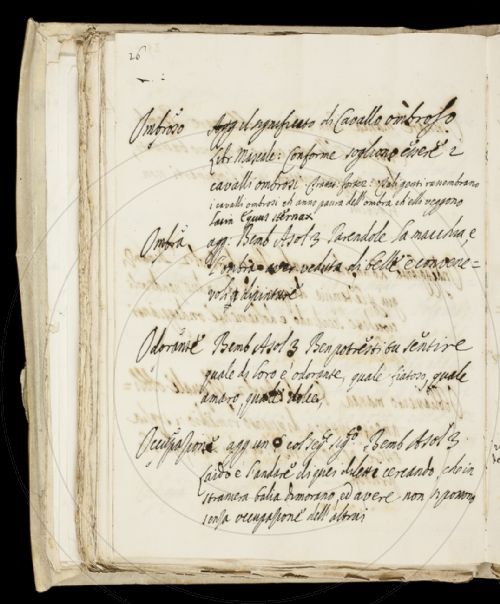 26
Ombroso Agg il significato di Cavallo ombroso
Libr Mascalc: Conforme sogliono essere i
cavalli ombrosi. Tali genti rassembrano
i cavalli ombrosi ch anno paura dell'ombra ch'elli veggono
Equus
Ombra agg: Bemb Asol 3 Parendole la macchia, e
l'ombra aver veduta di belle e convene=
voli dipinture
Odorante Bemb Asol 3 Ben potresti tu sentire
quale di loro è odorante, quale fiatoso, quale
amaro, quale dolce,
Occupasione agg un Bemb Asol 3
e l'andare di ques diletti cercando, che in
straniera balia dimorano, ed avere non si possono
senza occupasione dell'altrui